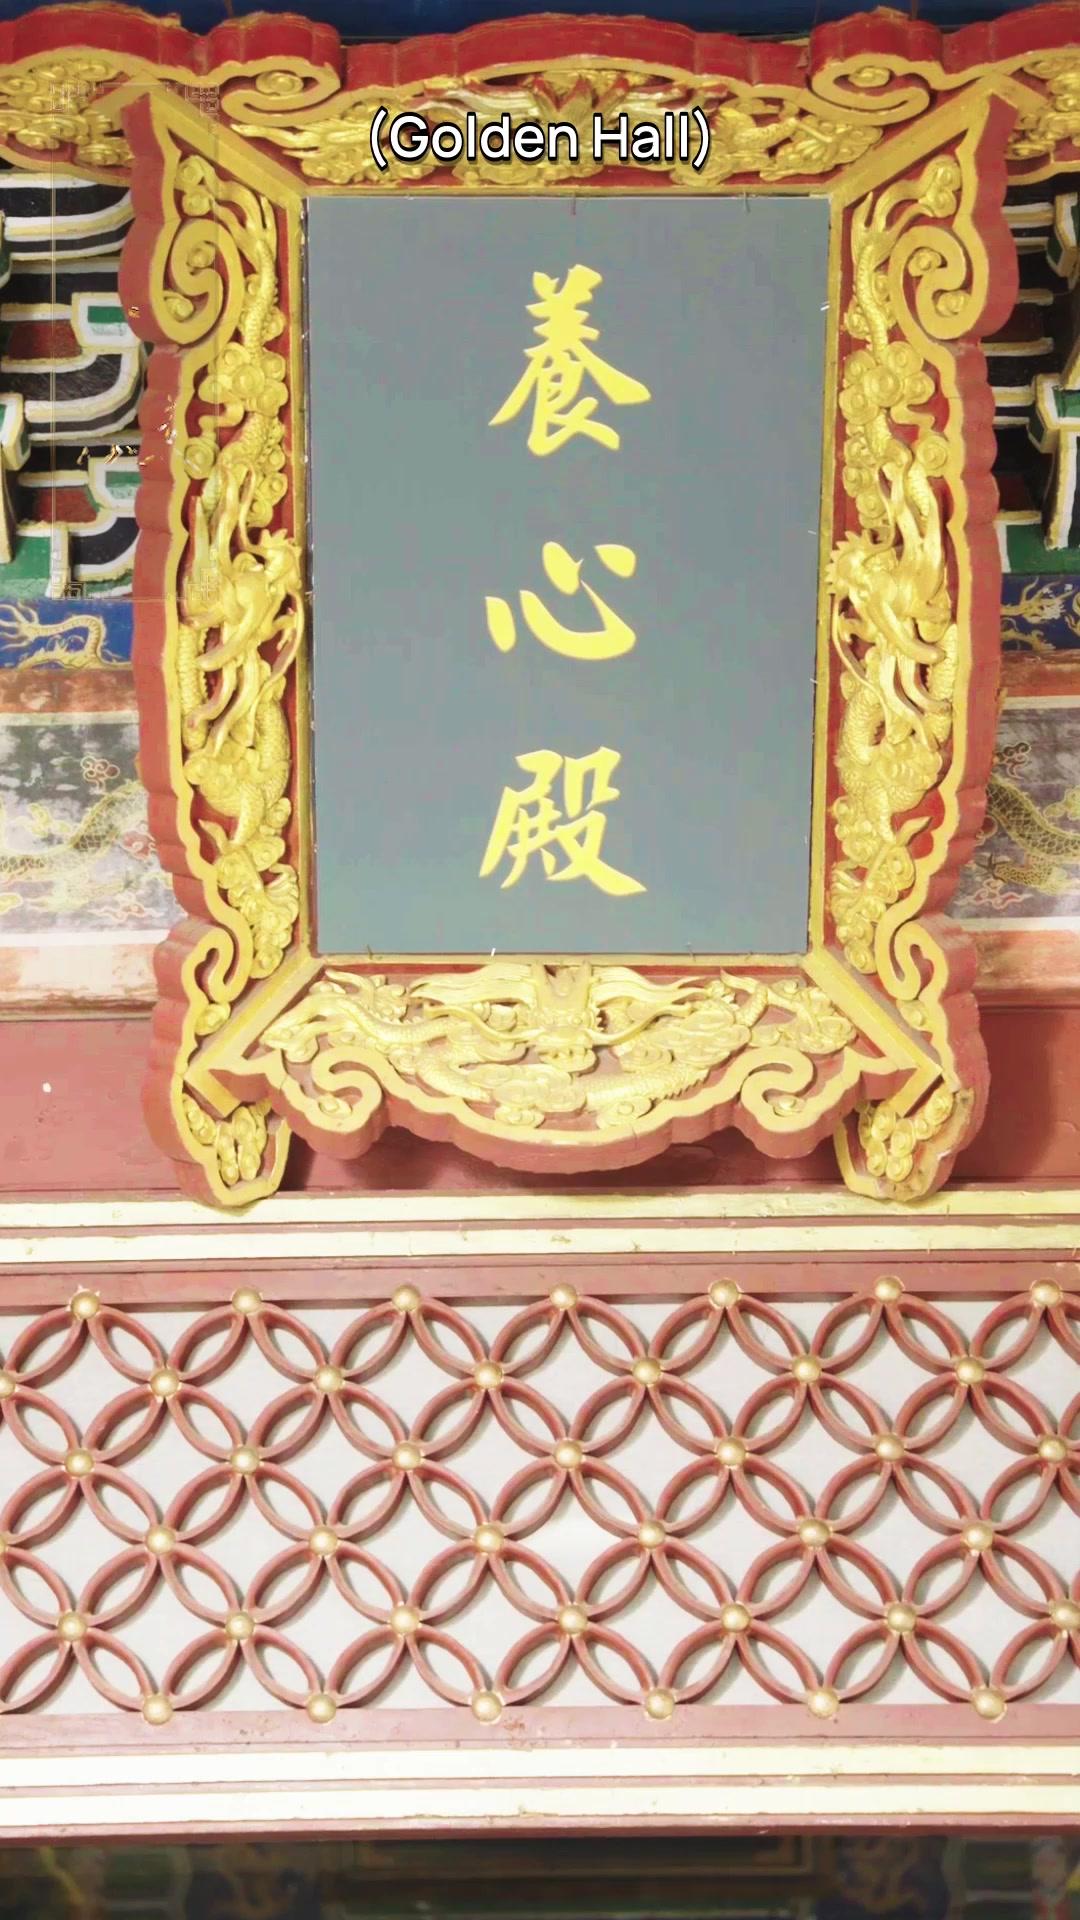 (Golden Hall)
養心殿